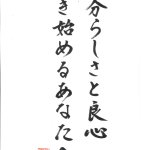 分らしさと良心
き始めるあなたへ